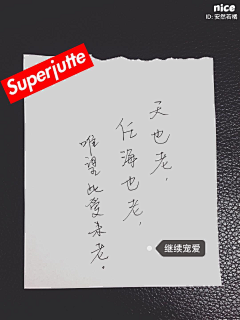 nice
ID: 安然若槿
Superjutte
天也老，
任海也老，
唯望此爱未老。
继续宠爱